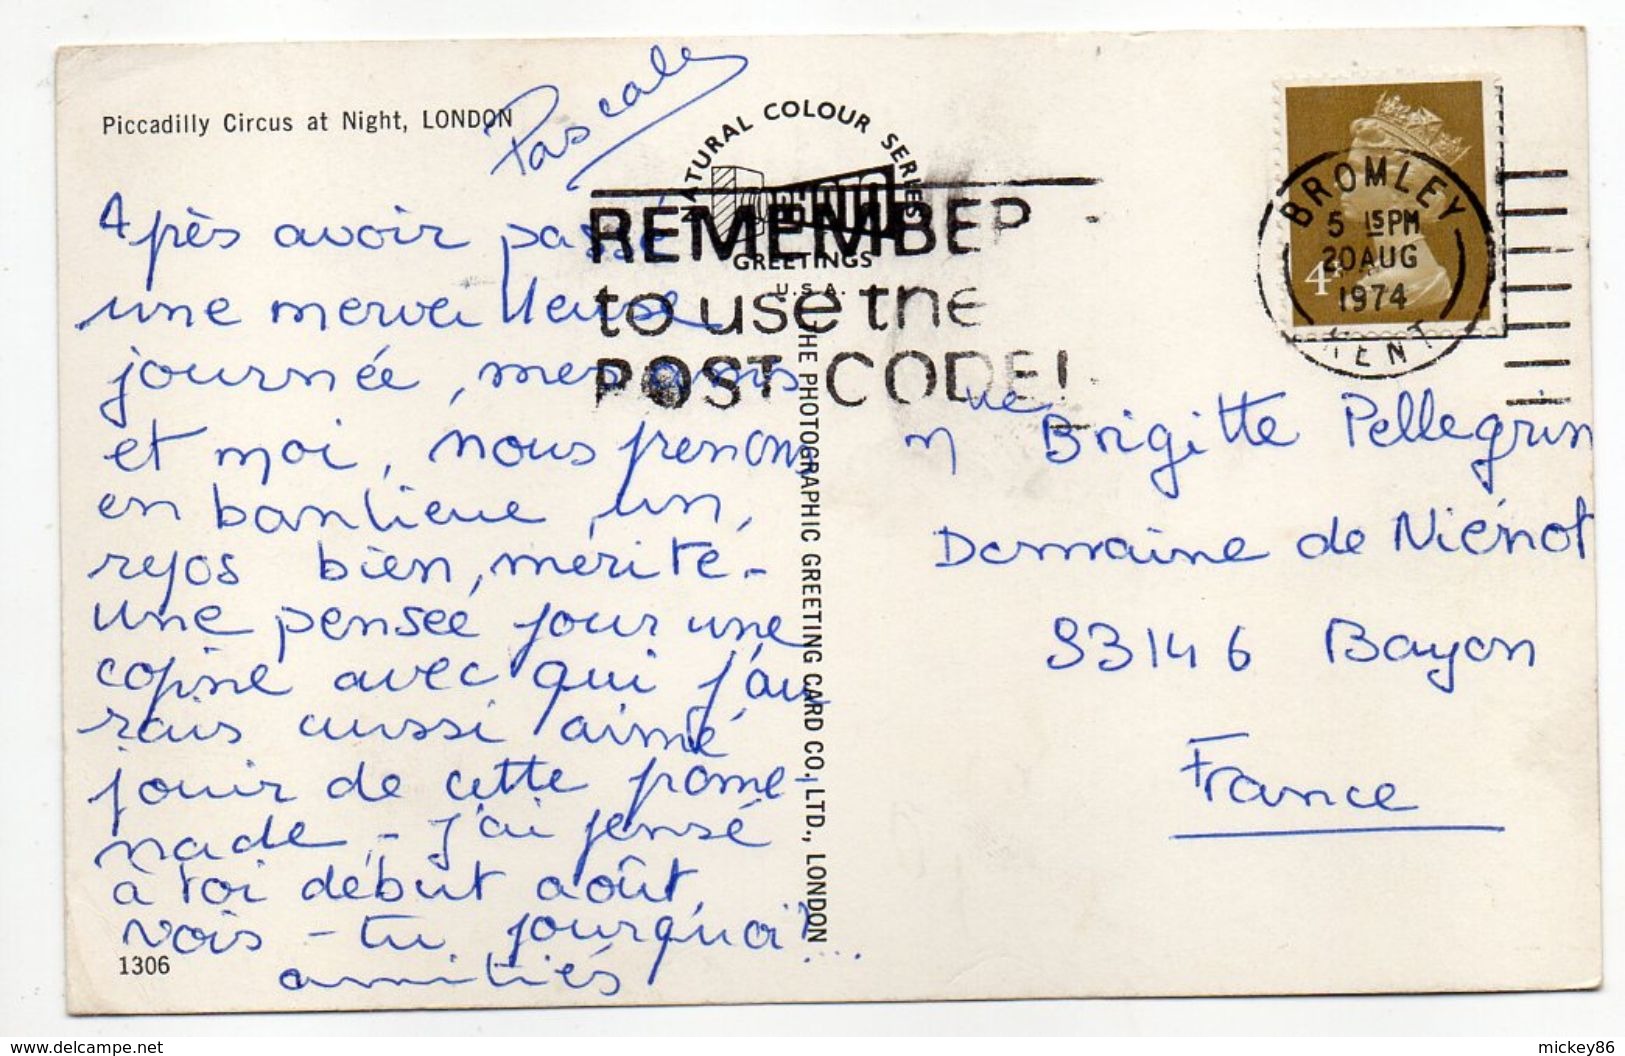 Piccadilly Circus at Night, LONDON
Pascale
NATURAL COLOUR SERIES
GREETINGS
U.S.A.
REMEMBER
to use the
POST CODE!
BROMLEY
5 15PM
20 AUG
1974
KENT
4
Après avoir passé
une merveilleuse
journée, mes amis
et moi, nous prenons
en banlieue un
repos bien mérité -
une pensée pour une
copine avec qui j'au
rais aussi aimé
jouir de cette prome-
nade - j'ai pensé
à toi début août,
vois-tu pourquoi?...
amitiés
1306
THE PHOTOGRAPHIC GREETING CARD CO., LTD., LONDON
Mlle Brigitte Pellegrin
Domaine de Niénot
33146 Bayon
France
www.delcampe.net
mickey86